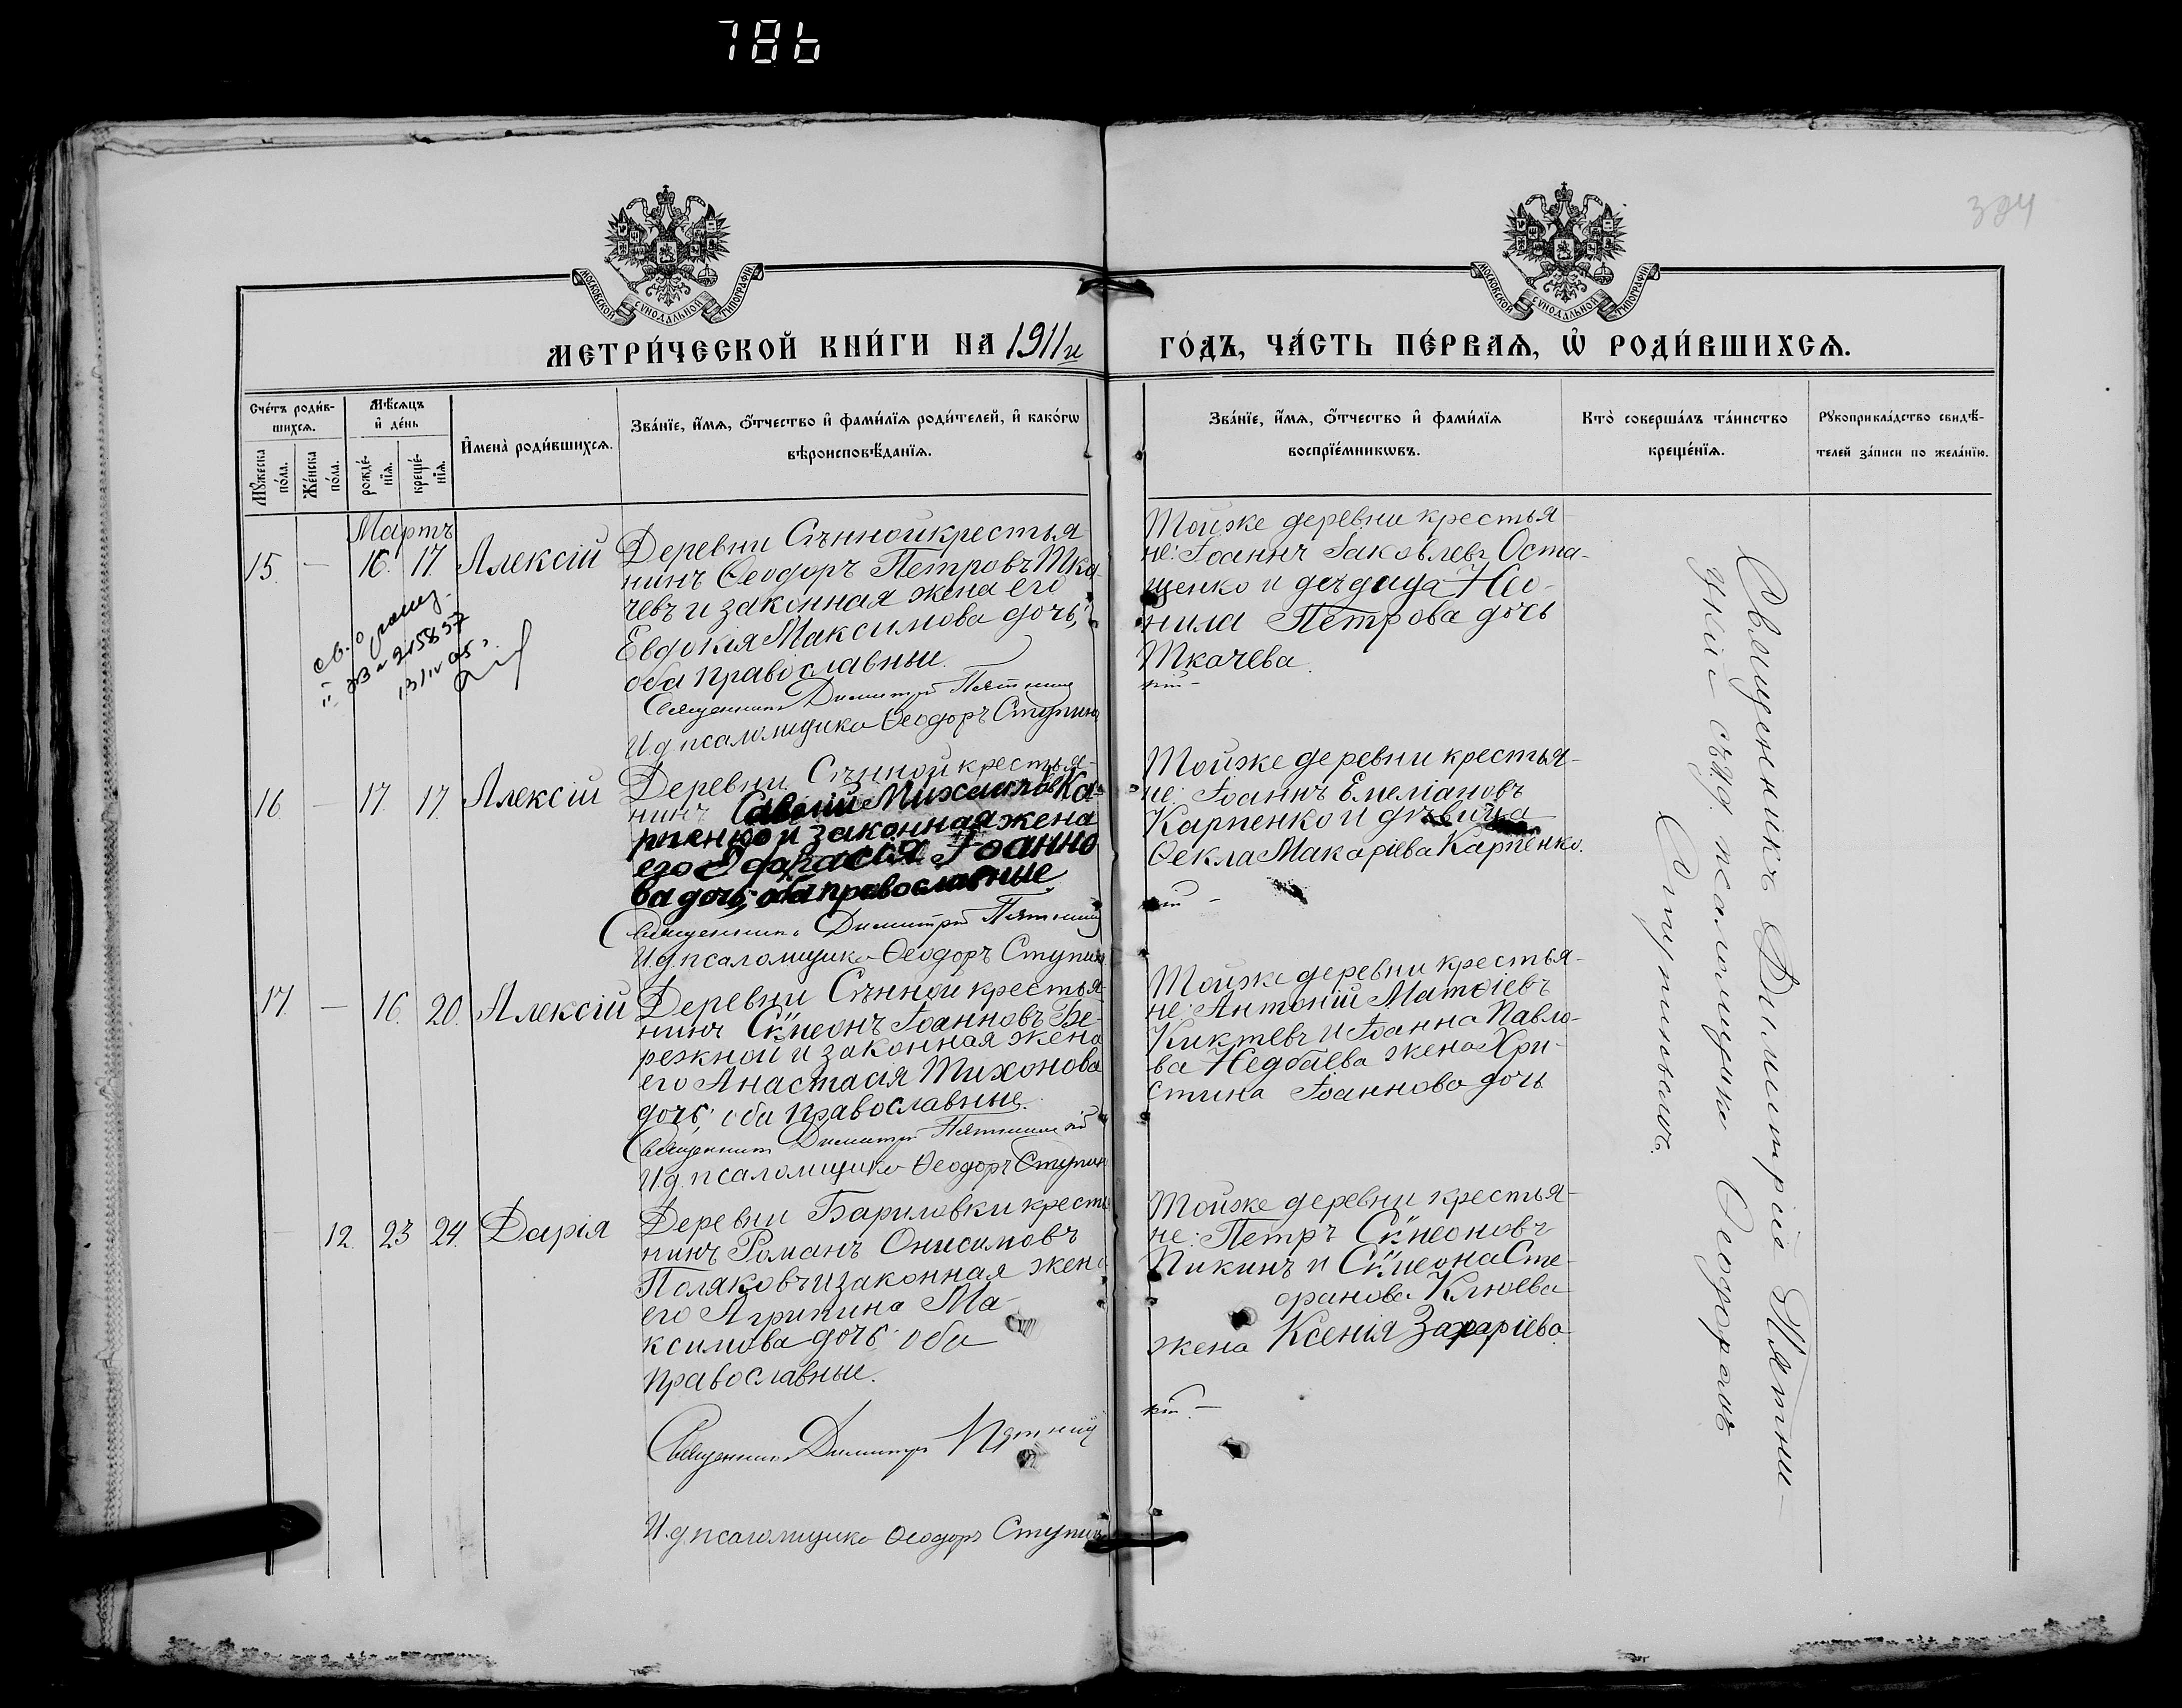 786
324
МОСКОВСКОЙ СѴНОДАЛЬНОЙ ТИПОГРАФІИ
МОСКОВСКОЙ СѴНОДАЛЬНОЙ ТИПОГРАФІИ
МЕТРИ́ЧЕСКОЙ КНИ́ГИ НА 1911й
ГО́ДЪ, ЧА́СТЬ ПЕ́РВАѦ, Ѡ РОДИ́ВШИХСѦ.
Сче́тъ роди́в-
шихсѧ.
Мꙋ́жеска
по́ла.
Же́нска
по́ла.
Мѣ́сѧцъ
и҆ де́нь
рожде́-
нїѧ.
креще́-
нїѧ.
И҆мена̀ роди́вшихсѧ.
Зва́нїе, и҆́мѧ, ѻ҆́тчество и҆ фами́лїѧ роди́телей, и҆ како́гѡ
вѣроисповѣ́данїѧ.
Зва́нїе, и҆́мѧ, ѻ҆́тчество и҆ фами́лїѧ
воспрїе́мникѡвъ.
Кто̀ соверша́лъ та́инство
креще́нїѧ.
Рꙋкоприкла́дство свидѣ́-
телей за́писи по жела́нїю.
Мартъ
15. — 16. 17. Алексій
Деревни Сѣнной крестья-
нинъ Ѳеодоръ Петровъ Тка-
чевъ и законная жена его
Евдокія Максимова дочь;
оба православные.
Священникъ Димитрій
И.д. псаломщика Ѳеодоръ Ступинъ
Тойже деревни крестья-
не: Іоаннъ Іаковлевъ Оста-
щенко и дѣвица Нео-
нила Петрова дочь
Ткачева.
16 — 17. 17. Алексій
Деревни Сѣнной крестья-
нинъ Михаиловъ Ка-
рпенко и законная жена
его Іоанно
ва дочь; оба православные.
Священникъ Димитрій
И.д. псаломщика Ѳеодоръ Ступинъ
Тойже деревни крестья-
не: Іоаннъ Емеліановъ
Карпенко и дѣвица
Ѳекла Макаріева Карпенко.
17. — 16. 20. Алексій
Деревни Сѣнной крестья-
нинъ Сѵмеонъ Іоанновъ Бе-
режной и законная жена
его Анастасія Тихонова
дочь; оба православные.
Священникъ Димитрій
И.д. псаломщика Ѳеодоръ Ступинъ
Тойже деревни крестья-
не: Антоній Матѳіевъ
Киктевъ и Іоанна Павло-
ва Недбаева жена Хри-
стина Іоаннова дочь
— 12. 23 24. Дарія
Деревни Бариловки крестья
нинъ Романъ Онисимовъ
Поляковъ и законная жена
его Агрипина Ма-
ксимова дочь; оба
православные.
Священникъ Димитрій
И.д. псаломщика Ѳеодоръ Ступинъ
Тойже деревни крестья-
не: Петръ Сѵмеоновъ
Пикинъ и Сѵмеона Сте-
фанова Клюева
жена Ксенія Захаріева.
Священникъ Димитрій Пятни-
цкій съ и.д. псаломщика Ѳеодоромъ
Ступинымъ.